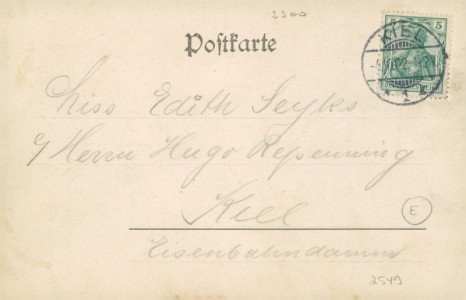 3300
Postkarte
5
KIEL
Miss Edith Seyks
p/ Herrn Hugo Repenning
Kiel
E
Eisenbahndamm
2549